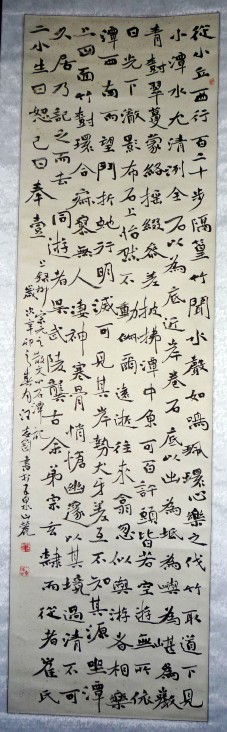 從小丘西行百二十步隔篁竹聞水聲如鳴珮環心樂之伐竹取道下見
小潭水尤清洌全石以為底近岸卷石底以出為坻為嶼為嵁為巖
青樹翠蔓蒙絡搖綴參差披拂潭中魚可百許頭皆若空游無所依
日光下澈影布石上怡然不動俶爾遠逝往來翕忽似與游者相樂
潭西南而望鬥折蛇行明滅可見其岸勢犬牙差互不可知其源坐潭
上四面竹樹環合寂寥無人淒神寒骨悄愴幽邃以其境過清不可
久居乃記之而去同游者吳武陵龔古余弟宗玄隸而從者崔氏
二小生曰恕己曰奉壹
上錄柳宗元之散文小石潭記
歲次辛卯之 月 國書於玉泉山麓